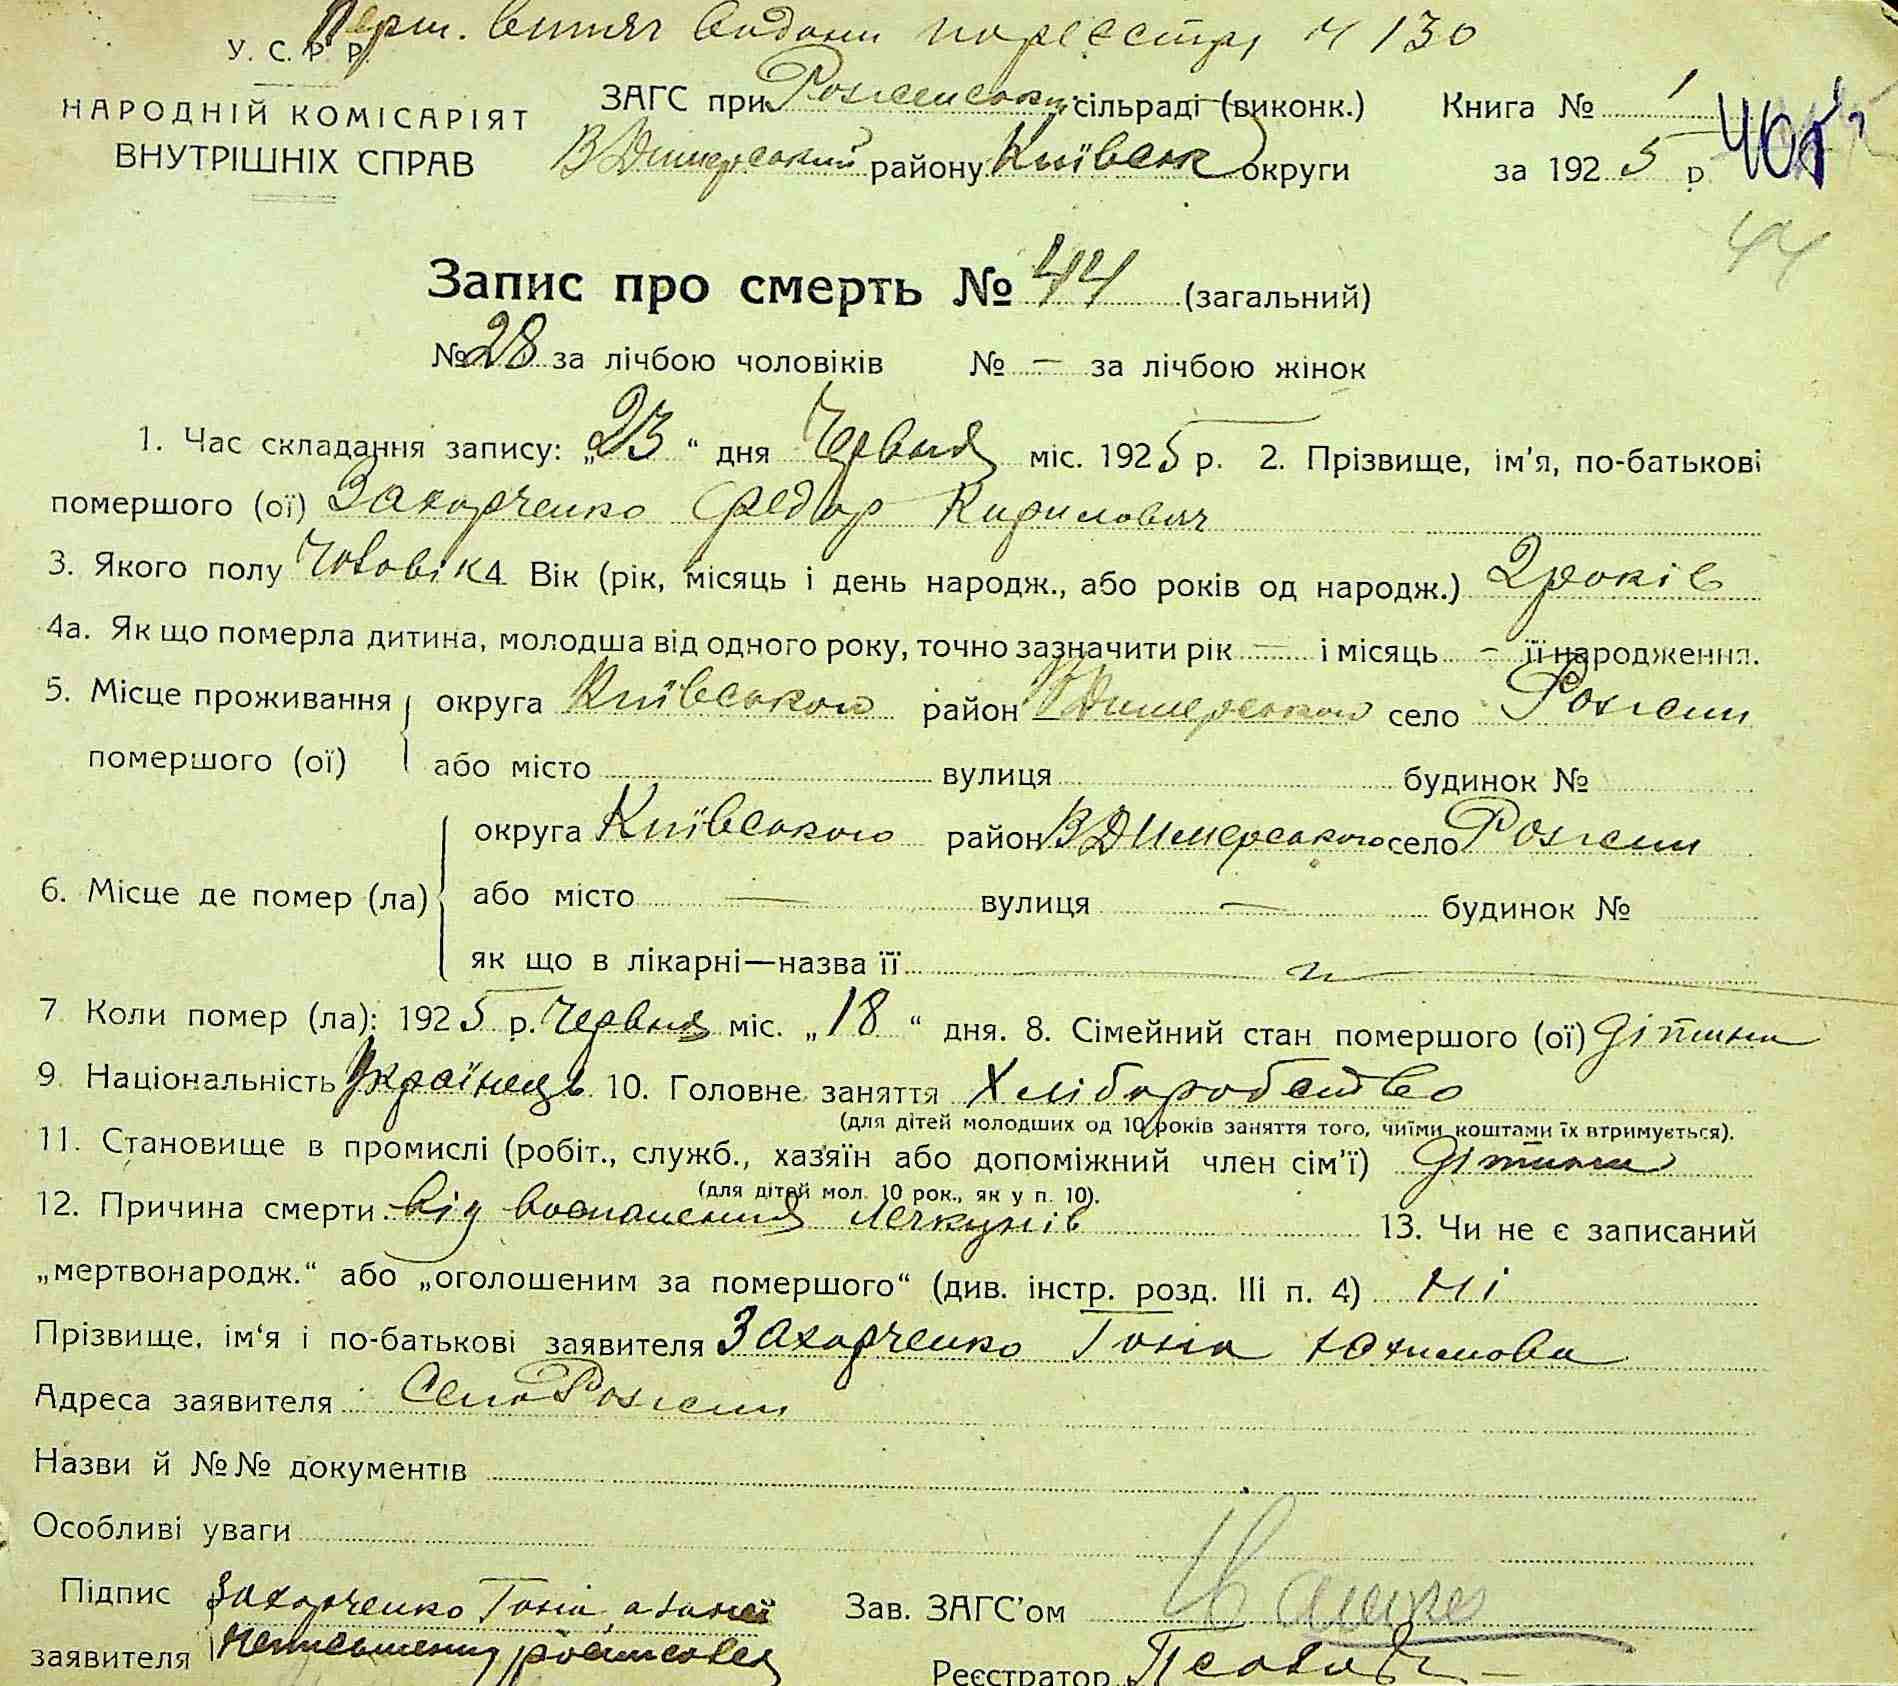 Перш. витяг видани по реєстру № 130
У. С. Р. Р.
НАРОДНІЙ КОМІСАРІЯТ
ВНУТРІШНІХ СПРАВ
ЗАГС при Роженський сільраді (виконк.)
В Димерський району Київськ округи
Книга № 1
за 1925 р.
44
Запис про смерть № 44 (загальний)
№ 28 за лічбою чоловіків № — за лічбою жінок
1. Час складання запису: „23“ дня Червня міс. 1925 р. 2. Прізвище, ім'я, по-батькові
помершого (ої) Захарченко Федор Кирилович
3. Якого полу Чоловік 4. Вік (рік, місяць і день народж., або років од народж.) 2 років
4а. Як що померла дитина, молодша від одного року, точно зазначити рік — і місяць — її народження.
5. Місце проживання помершого (ої) округа Київського район В Димерського село Рожни
або місто вулиця будинок №
6. Місце де помер (ла) округа Київського район В Димерського село Рожни
або місто — вулиця — будинок №
як що в лікарні—назва її
7. Коли помер (ла): 1925 р. Червня міс. „18“ дня. 8. Сімейний стан помершого (ої) дітина
9. Національність Українець 10. Головне заняття Хліборобство
(для дітей молодших од 10 років заняття того, чиїми коштами їх втримується).
11. Становище в промислі (робіт., служб., хазяїн або допоміжний член сім'ї) дітина
(для дітей мол. 10 рок., як у п. 10).
12. Причина смерти від воспаления легкунів 13. Чи не є записаний
„мертвонародж.“ або „оголошеним за помершого“ (див. інстр. розд. III п. 4) Ні
Прізвище, ім'я і по-батькові заявителя Захарченко Ганна Юхимова
Адреса заявителя Село Рожни
Назви й №№ документів
Особливі уваги
Підпис заявителя Захарченко Ганна, а за неї
неписьменну росписовся
Зав. ЗАГС'ом
Реєстратор